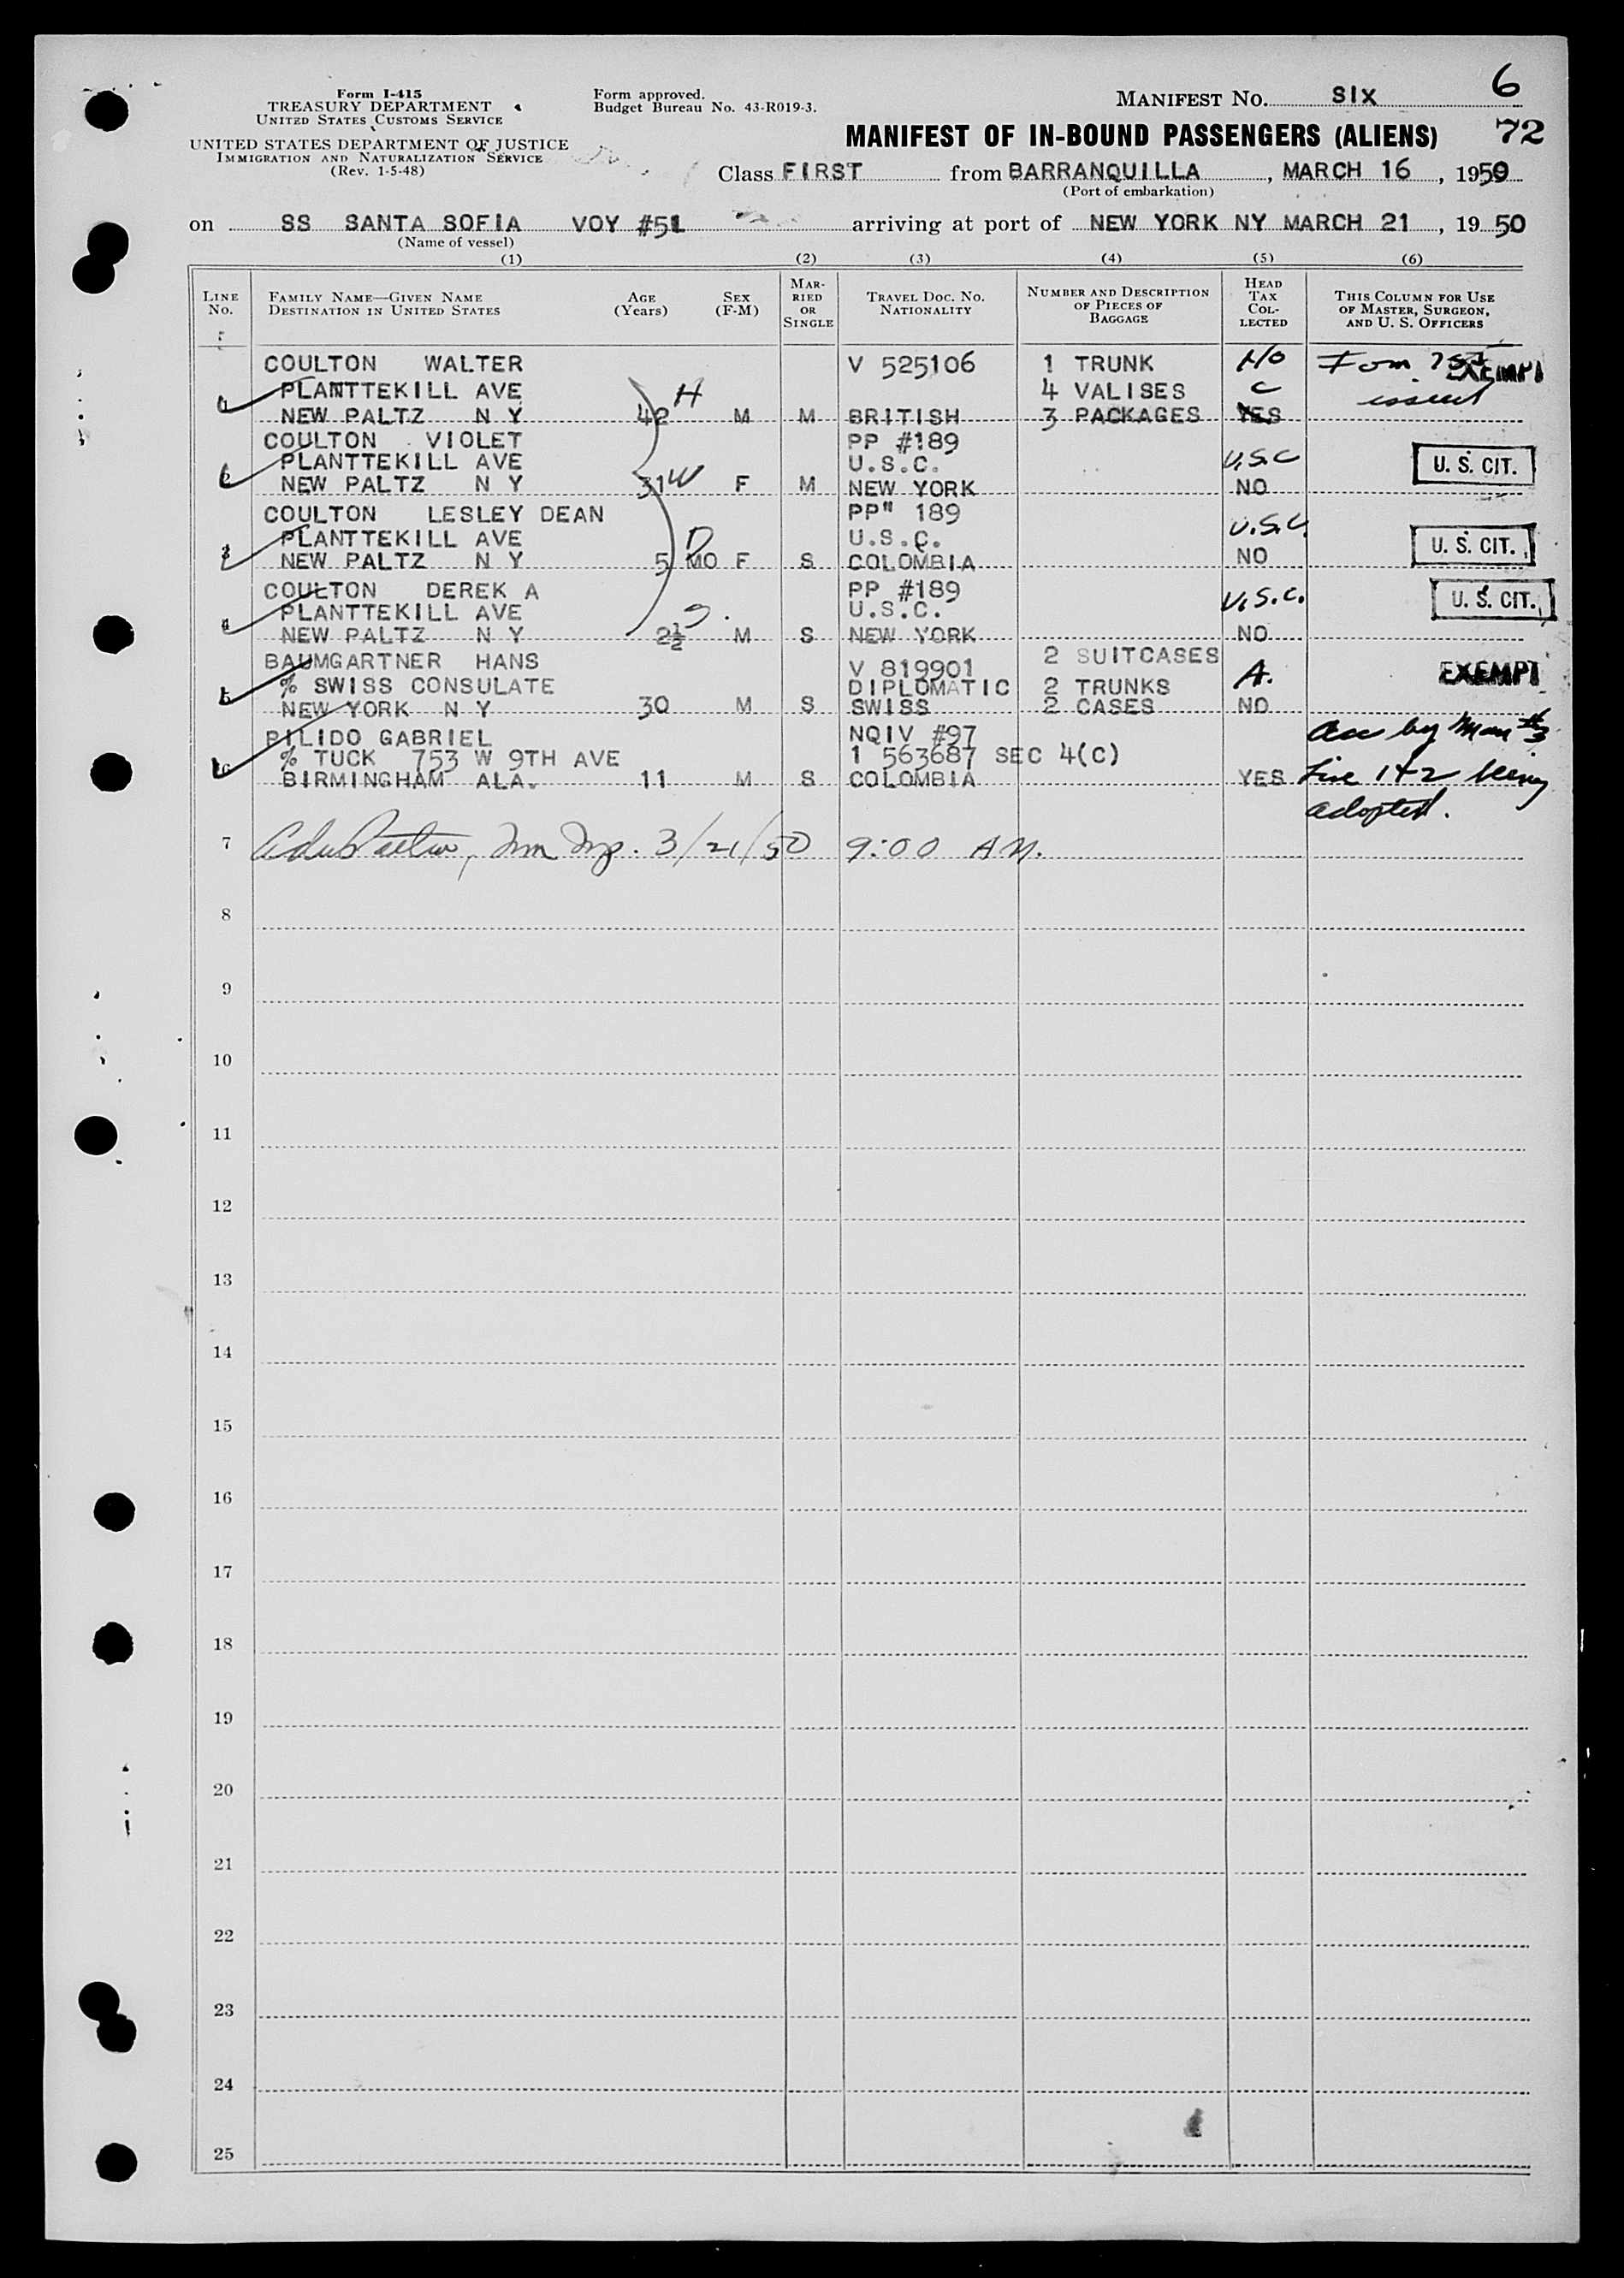 Form I-415
TREASURY DEPARTMENT
UNITED STATES CUSTOMS SERVICE
UNITED STATES DEPARTMENT OF JUSTICE
IMMIGRATION AND NATURALIZATION SERVICE
(Rev. 1-5-48)
Form approved.
Budget Bureau No. 43-R019-3.
MANIFEST NO. SIX 6
MANIFEST OF IN-BOUND PASSENGERS (ALIENS) 72
Class FIRST from BARRANQUILLA, MARCH 16, 1950
(Port of embarkation)
on SS SANTA SOFIA VOY #51 arriving at port of NEW YORK NY MARCH 21, 19 50
(Name of vessel)
(1) (2) (3) (4) (5) (6)
LINE NO.
FAMILY NAME—GIVEN NAME
DESTINATION IN UNITED STATES
AGE (Years)
SEX (F-M)
MARRIED OR SINGLE
TRAVEL DOC. NO.
NATIONALITY
NUMBER AND DESCRIPTION
OF PIECES OF
BAGGAGE
HEAD TAX COLLECTED
THIS COLUMN FOR USE
OF MASTER, SURGEON,
AND U. S. OFFICERS
COULTON WALTER V 525106 1 TRUNK No EXEMPT
PLANTTEKILL AVE H 4 VALISES C issued
NEW PALTZ N Y 42 M M BRITISH 3 PACKAGES YES
COULTON VIOLET PP #189
PLANTTEKILL AVE U.S.C. U.S.C U. S. CIT.
NEW PALTZ N Y 31 W F M NEW YORK NO
COULTON LESLEY DEAN PP" 189
PLANTTEKILL AVE D U.S.C. U.S.C. U. S. CIT.
NEW PALTZ N Y 5 MO F S COLOMBIA NO
COULTON DEREK A PP #189 U. S. CIT.
PLANTTEKILL AVE S. U.S.C. U.S.C.
NEW PALTZ N Y 2½ M S NEW YORK NO
BAUMGARTNER HANS V 819901 2 SUITCASES
% SWISS CONSULATE DIPLOMATIC 2 TRUNKS A. EXEMPT
NEW YORK N Y 30 M S SWISS 2 CASES NO
PILIDO GABRIEL NQIV #97 acc by Man #3
% TUCK 753 W 9TH AVE 1 563687 SEC 4(C)
BIRMINGHAM ALA. 11 M S COLOMBIA YES Line 1+2 being
adopted.
7 3/21/50 9:00 AM.
8
9
10
11
12
13
14
15
16
17
18
19
20
21
22
23
24
25